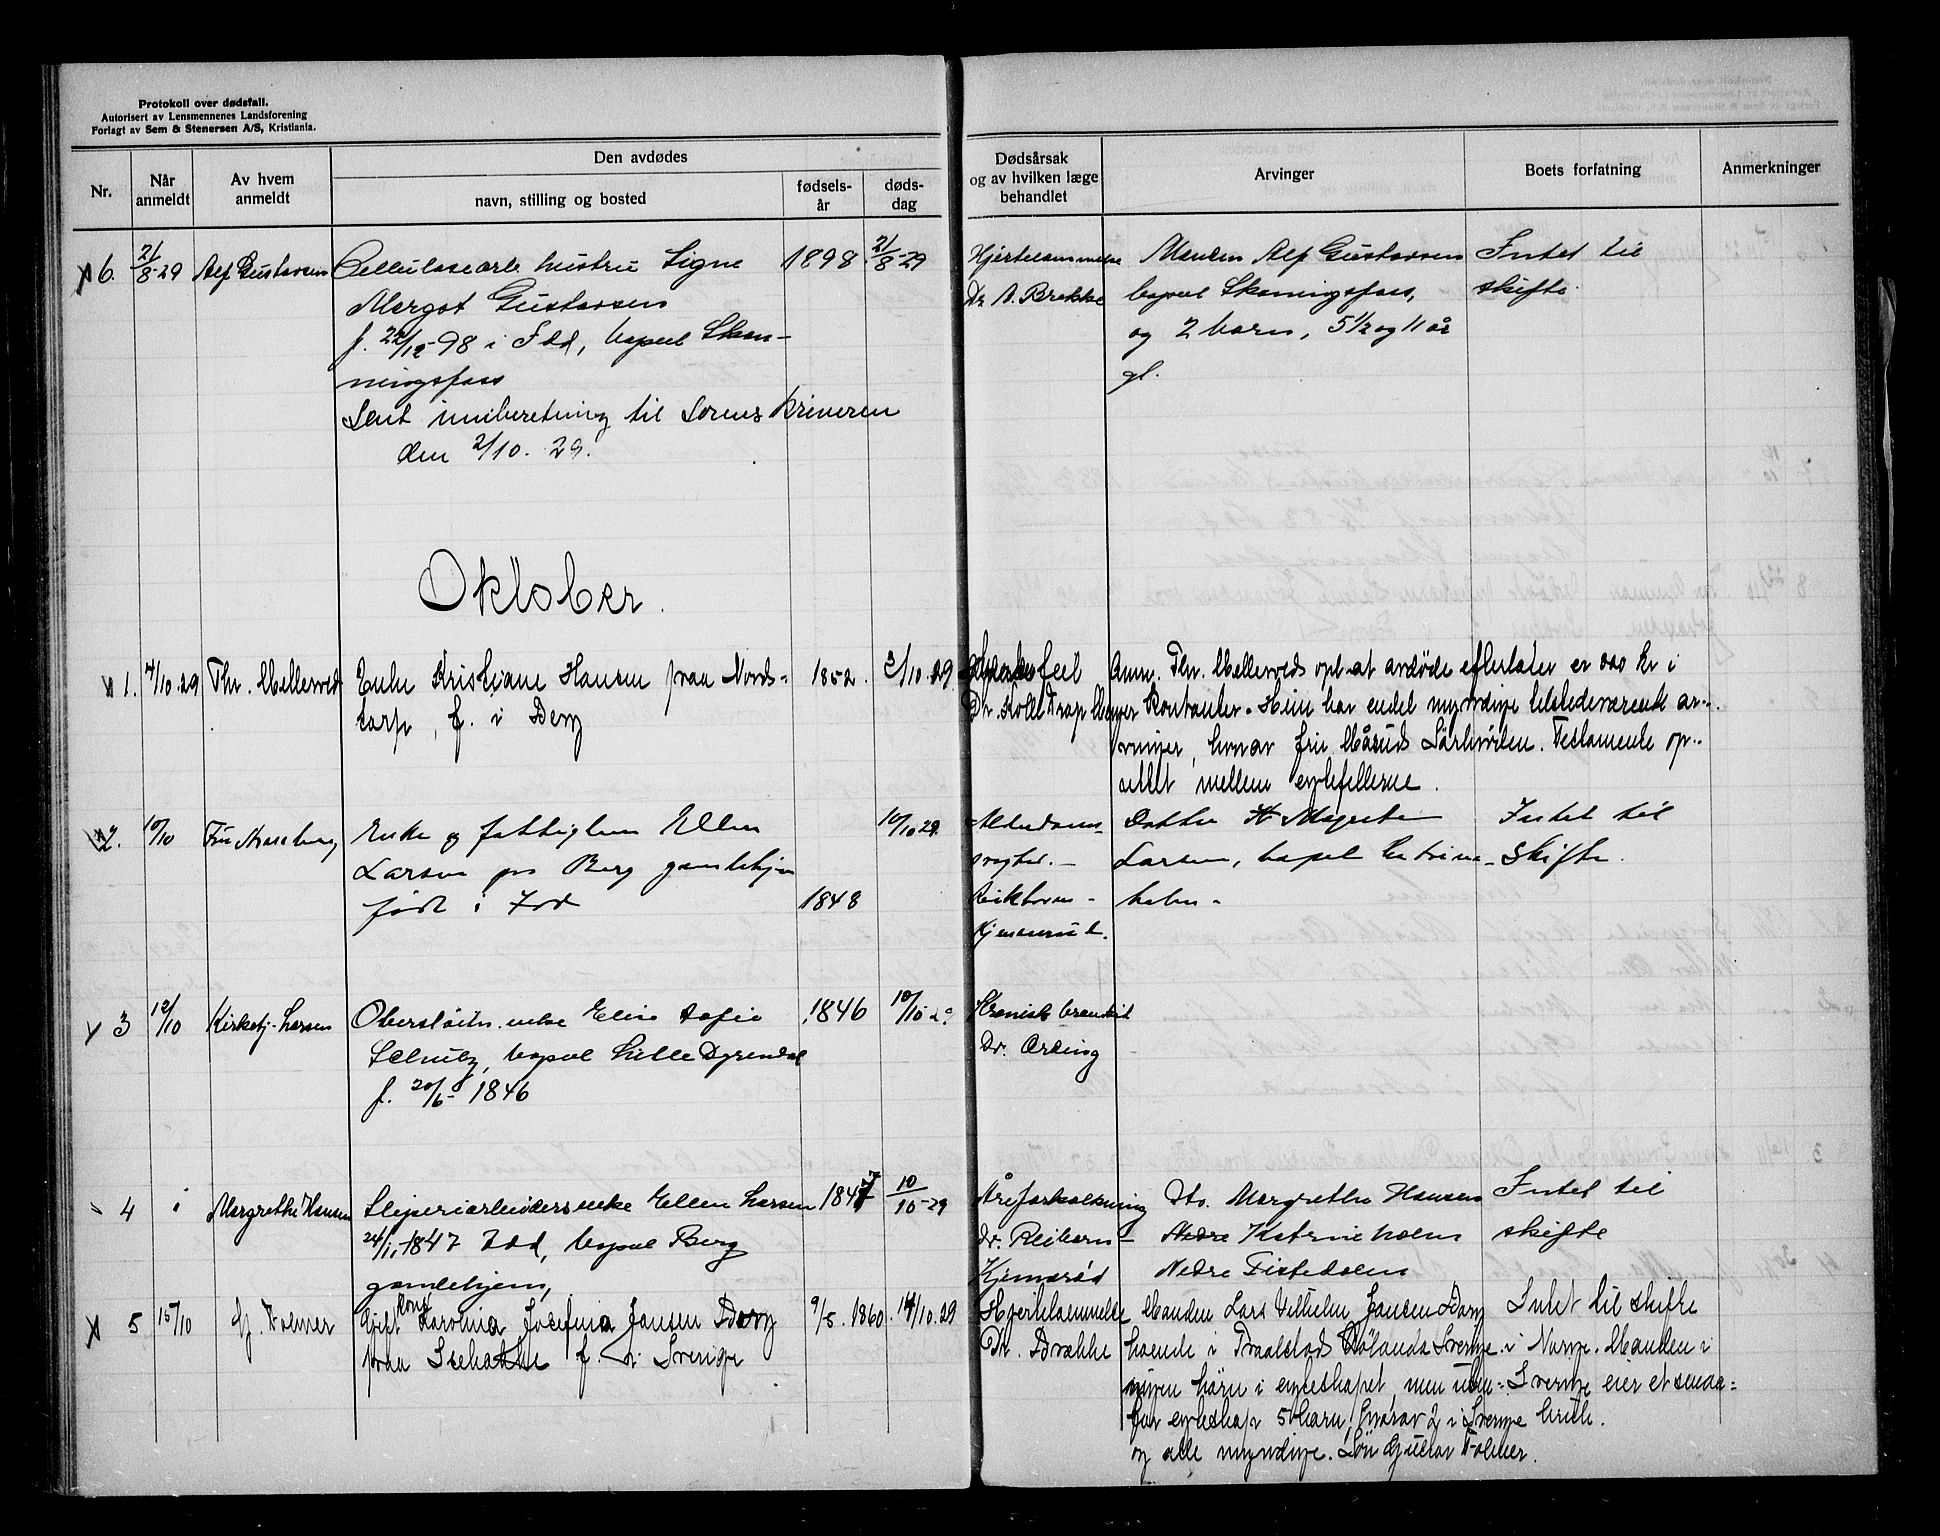 Protokoll over dødsfall.
Autorisert av Lensmennenes Landsforening
Forlagt av Sem & Stenersen A/S, Kristiania.
Nr.
Når anmeldt
Av hvem anmeldt
Den avdødes
navn, stilling og bosted
fødsels-år
døds-dag
Dødsårsak og av hvilken læge behandlet
Arvinger
Boets forfatning
Anmerkninger
6. 21/8-29 Alf Gustavsen
Cellulosearb hustru Signe
Margot Gustavsen
f. 22/12-98 i Idd, bopæl Skon-
ningsfoss
Sent innberetning til Sorenskriveren
den 2/10. 29.
1898 21/8-29
Hjertelammelse
Dr A. Brekke
Manden Alf Gustavsen
bopæl Skoningsfoss,
og 2 barn, 5 1/2 og 11 år
gl.
Intet til
skifte.
Oktober.
1. 4/10 29 Thr.
Enke Kristiane Hansen paa Nords-
torp, f. i Berg
1852. 3/10 29
Hjertefeil
Dr. Kolle
Anm. Thr. opl. at avdøde efterlater er 000 kr i
Kontanter. Hun har endel myndige tilstedeværende ar-
vinger, hvorav fru. Testamente op-
rettet mellem egtefellerne.
2. 10/10 Fru
Enke og fattiglem Ellen
Larsen pr Berg gamlehjem
født i Idd
1848
10/10 29.
Alderdoms-
svaghet.
Reikboren-
Datter Magrete
Larsen, bopel Katrine-
holm.
Intet til
skifte.
3 12/10 Kirketj. Larsen
Oberstløitn. enke Elise Sofie
Schultz, bopæl Lille Dyrendal
f. 20/6 1846
1846 10/10-29
Kronisk bronkit
Dr. Ording
4 Margrethe Hansen
Sliperiarbeiders enke Ellen Larsen
24/1, 1847 Idd, bopæl Berg
gamlehjem,
1847 10/10-29
Åreforkalkning
dr. Reiborn-
Kjemerød
Dto. Margrethe Hansen
Nedre Katrineholm
Nedre Tistedalen
Intet til
skifte
5 15/10 G. Folmer
Gift kone Karolina Josefina Jansen Berg
paa f. i Sverige
9/5. 1860. 14/10. 29
Hjertelammelse
Dr. Brække
Manden Lars Vilhelm Jansen Berg
boende i Sverige.
ingen børn i egteskapet, men uten-
for egteskap 5 barn, hvorav 2 i Sverige
og alle myndige. Søn Gustav Folmer.
Intet til skifte
i Norge. Manden i
Sverige eier et smaa-
bruk.